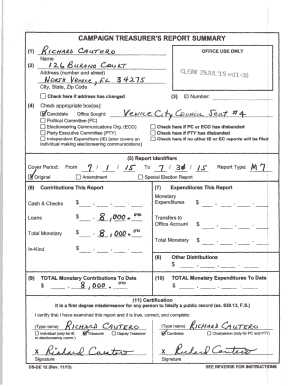 CAMPAIGN TREASURER'S REPORT SUMMARY
(1) RICHARD CAUTERO
Name
OFFICE USE ONLY
(2) 126 BURANO COURT
Address (number and street)
NORTH VENICE, FL 34275
City, State, Zip Code
CLERK 29JUL'15
Check here if address has changed
(3) ID Number:
(4) Check appropriate box(es):
Candidate Office Sought: VENICE CITY COUNCIL SEAT #4
Political Committee (PC)
Electioneering Communications Org. (ECO)
Check here if PC or ECO has disbanded
Party Executive Committee (PTY)
Check here if PTY has disbanded
Independent Expenditure (IE) (also covers an
Check here if no other IE or EC reports will be filed
individual making electioneering communications)
(5) Report Identifiers
Cover Period: From 7 / 1 / 15 To 7 / 31 / 15 Report Type: M7
Original Amendment Special Election Report
(6) Contributions This Report
(7) Expenditures This Report
Monetary
Cash & Checks $
Expenditures $
Loans $ 8,000.
Transfers to
Office Account $
Total Monetary $ 8,000.
Total Monetary $
In-Kind $
(8) Other Distributions
$
(9) TOTAL Monetary Contributions To Date
(10) TOTAL Monetary Expenditures To Date
$ 8,000.
$
(11) Certification
It is a first degree misdemeanor for any person to falsify a public record (ss. 839.13, F.S.)
I certify that I have examined this report and it is true, correct, and complete:
(Type name) RICHARD CAUTERO
(Type name) RICHARD CAUTERO
Individual (only for IE Treasurer Deputy Treasurer
or electioneering comm.)
Candidate Chairperson (only for PC and PTY)
X Richard Cautero
X Richard Cautero
Signature
Signature
DS-DE 12 (Rev. 11/13)
SEE REVERSE FOR INSTRUCTIONS